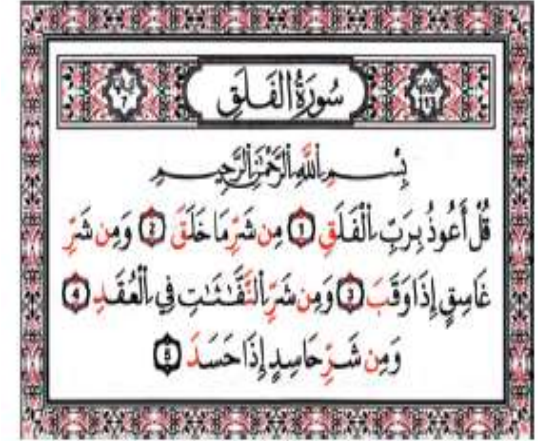 سُورَةُ الفَلَقِ
بِسْمِ اِ۬للَّهِ اِ۬لرَّحْمَٰنِ اِ۬لرَّحِيمِ
قُلْ أَعُوذُ بِرَبِّ اِ۬لْفَلَقِ ١ مِن شَرِّ مَا خَلَقَ ٢ وَمِن شَرِّ
غَاسِقٍ إِذَا وَقَبَ ٣ وَمِن شَرِّ اِ۬لنَّفَّٰثَٰتِ فِي اِ۬لْعُقَدِ ٤
وَمِن شَرِّ حَاسِدٍ إِذَا حَسَدَ ٥